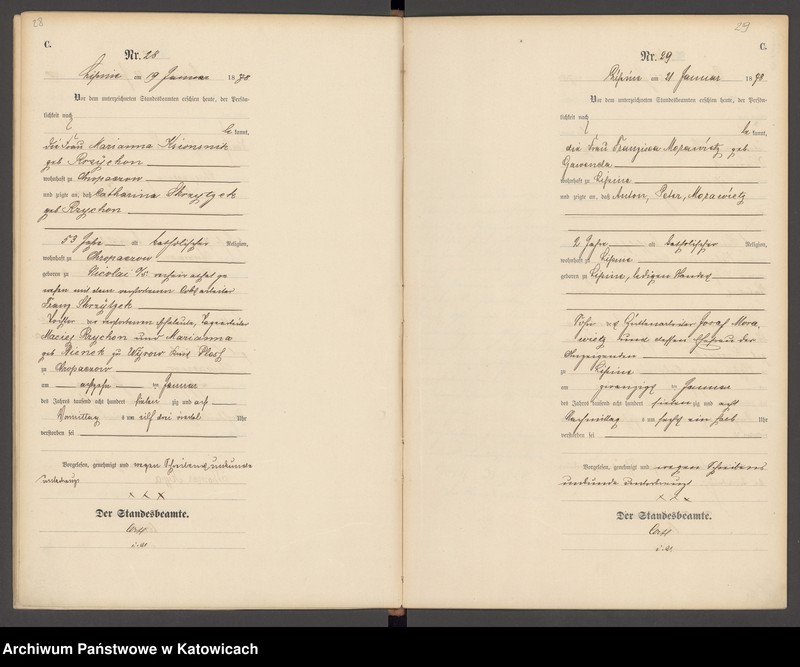 28
C.
Nr. 28
Lipine am 19 Januar 1878
Vor dem unterzeichneten Standesbeamten erschien heute, der Persön-
lichkeit nach
be kannt,
die Frau Marianna
geb Rozychon
wohnhaft zu Chropaczow
und zeigte an, daß Catharina Skrzypek
geb Rzychon
53 Jahr alt katholischer Religion,
wohnhaft zu Chropaczow
geboren zu Nicolai O/S
Franz Skrzypek
Tochter der verstorbenen Eheleute,
Maciej Rzychon und Marianna
geb zu Wyrow Kreis Pless
zu Chropaczow
am achtzehn ten Januar
des Jahres tausend acht hundert sieben zig und acht
Vormittag s um elf drei viertel Uhr
verstorben sei
Vorgelesen, genehmigt und wegen Schreibens unkunde
unterkreuzt
x x x
Der Standesbeamte.
29
C.
Nr. 29
Lipine am 21 Januar 1878
Vor dem unterzeichneten Standesbeamten erschien heute, der Persön-
lichkeit nach
be kannt,
die Frau Franziska Morawietz geb
Gawenda
wohnhaft zu Lipine
und zeigte an, daß Anton, Peter, Morawietz
2 Jahr alt katholischer Religion,
wohnhaft zu Lipine
geboren zu Lipine, ledigen Standes
Sohn des Hüttenarbeiter Josef Mora
wietz und dessen Ehefrau der
Anzeigenden
zu Lipine
am zwanzigst ten Januar
des Jahres tausend acht hundert sieben zig und acht
Nachmittag s um sechs ein halb Uhr
verstorben sei
Vorgelesen, genehmigt und wegen Schreibens
unkunde unterkreuzt
x x x
Der Standesbeamte.
Archiwum Państwowe w Katowicach